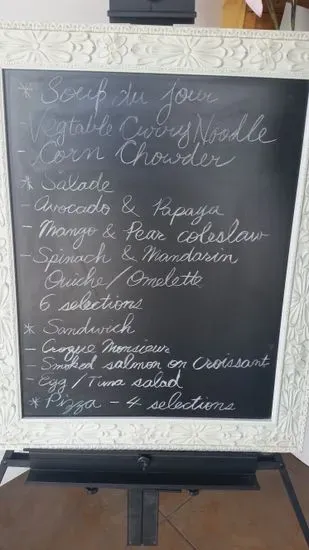 * Soup du jour
- Vegtable Curry Noodle
- Corn Chowder
* Salade
- Avocado & Papaya
- Mango & Pear coleslaw
- Spinach & Mandarin
Quiche / Omelette
6 selections
* Sandwich
- Croque Monsieur
- Smoked salmon on croissant
- Egg / Tuna salad
* Pizza - 4 selections